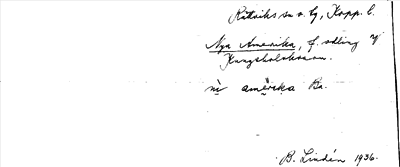 Rättviks sn o. tg, Kopp. l.
Nya Amerika, f. odling V
Kungsholskroken.
nỳ amèrika Ba.
B. Lindén 1936.